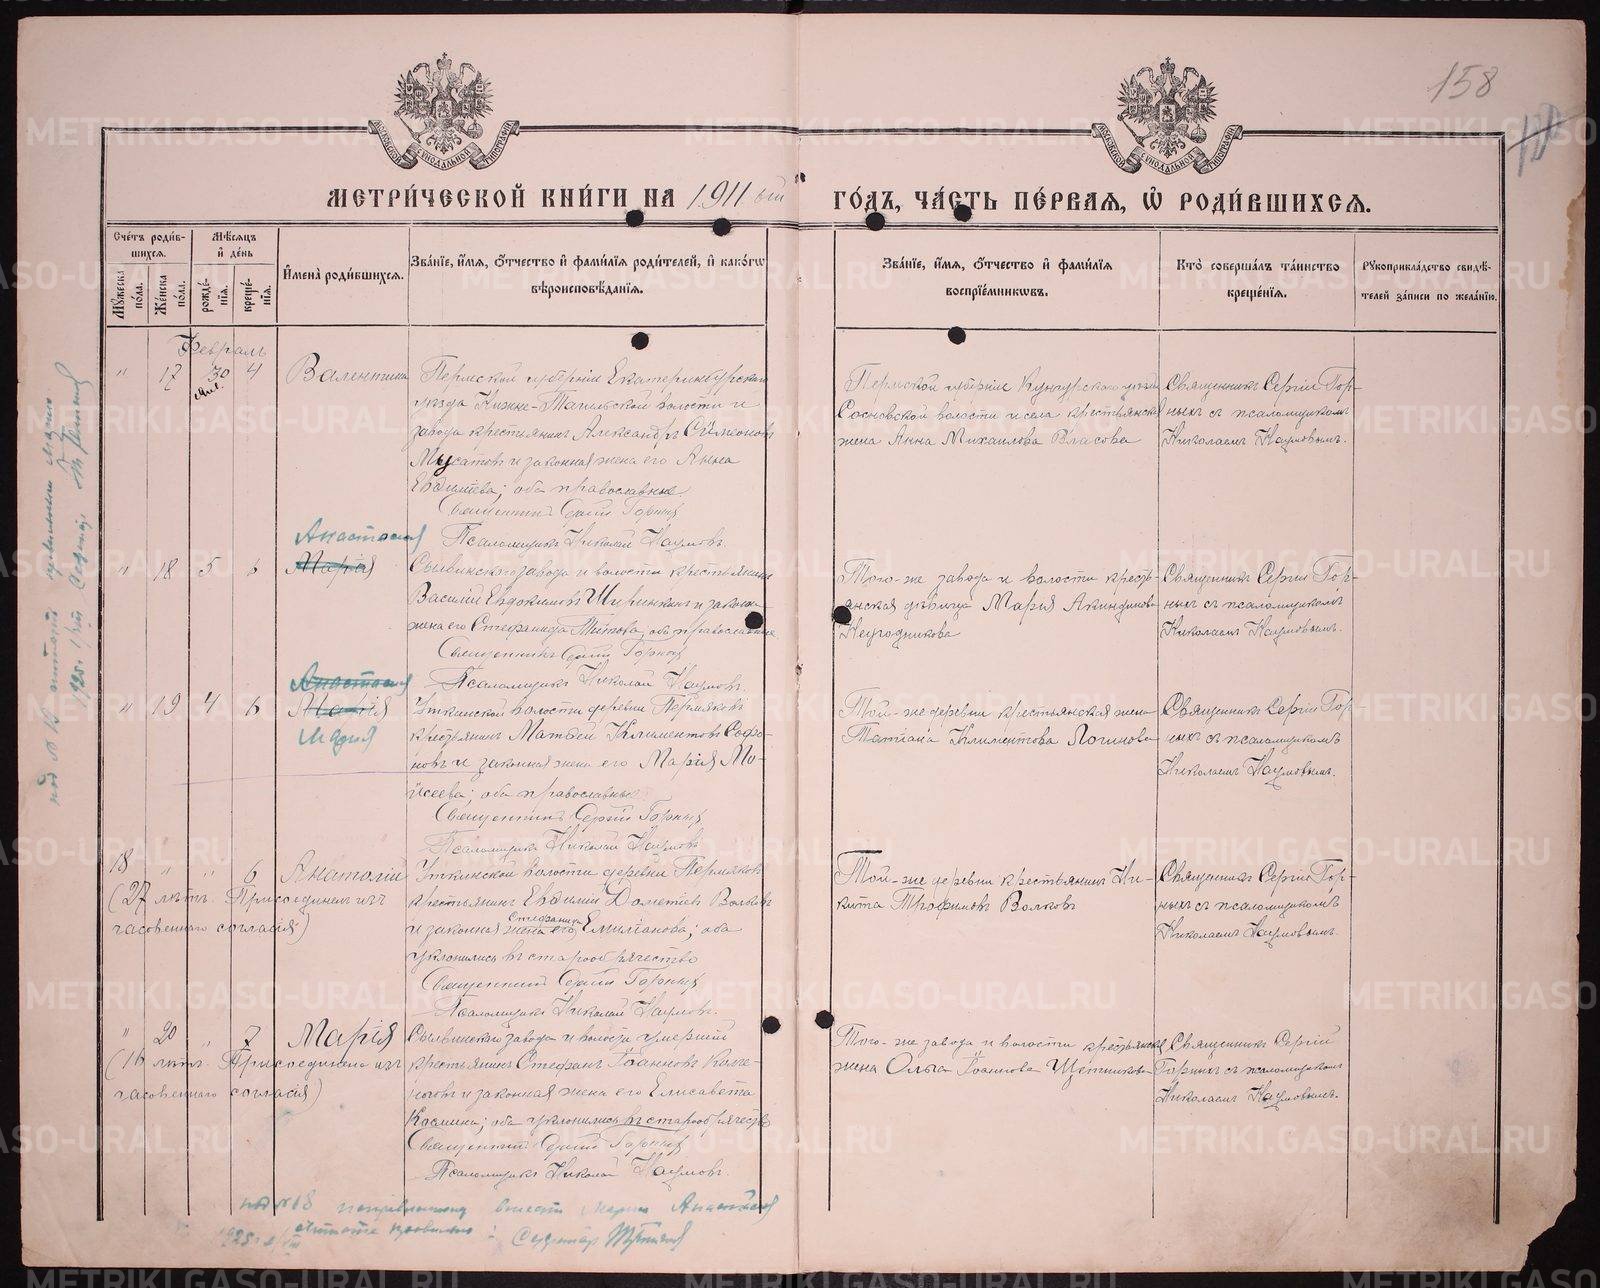 158
МЕТРИ́ЧЕСКОЙ КНИ́ГИ НА 1911 ый ГО́ДЪ, ЧА́СТЬ ПЕ́РВАЯ, Ѡ҆ РОДИ́ВШИХСЯ.
Сче́тъ роди́вшихся.
Мѣ́сяцъ и҆ де́нь
И҆мена̀ роди́вшихся.
Зва́нїе, и҆́мя, ѻ҆́тчество и҆ фами́лїя роди́телей, и҆ како́гѡ
вѣроисповѣ́данїя.
Зва́нїе, и҆́мя, ѻ҆́тчество и҆ фами́лїя
воспрїе́мникѡвъ.
Кто̀ соверша́лъ та́инство
креще́нїя.
Рꙋкоприкла́дство свидѣ́-
телей за́писи по жела́нїю.
Мꙋ́жеска по́ла.
Же́нска по́ла.
рожде́-
нїя.
креще́-
нїя.
Февраль
" 17 30 янв. 4 Валентина
Пермской губерніи Екатеринбургскаго
уѣзда Нижне-Тагильской волости и
завода крестьянинъ Александръ Симеоновъ
Мусатовъ и законная жена его Анна
; оба православные.
Священникъ Сергій Горныхъ
Псаломщикъ Николай Наумовъ.
Пермской губерніи Кунгурскаго уѣзда
Сосновской волости и села крестьянская
жена Анна Михаилова Власова
Священникъ Сергій Гор-
ныхъ съ псаломщикомъ
Николаемъ Наумовымъ.
" 18 5 6 Анастасия
Марія
Сылвинскаго завода и волости крестьянинъ
Василій Евдокимовъ Ширинкинъ и законная
жена его Стефанида Титова; оба православные
Священникъ Сергій Горныхъ
Псаломщикъ Николай Наумовъ.
Того-же завода и волости кресть-
янская дѣвица Марія Акиндинова
Неугодникова
Священникъ Сергій Гор-
ныхъ съ псаломщикомъ
Николаемъ Наумовымъ.
" 19 4 6 Анастасия
Марія
Уткинской волости деревни Пермяковъ
крестьянинъ Матѳей Климентовъ Софро-
новъ и законная жена его Марія Мо-
исеева; оба православные
Священникъ Сергій Горныхъ
Псаломщикъ Николай Наумовъ
Той-же деревни крестьянская жена
Татіана Климентова Логинова
Священникъ Сергій Гор-
ныхъ съ псаломщикомъ
Николаемъ Наумовымъ.
18 " " 6 Анатолій
(27 лѣтъ. Присоединенъ изъ
часовеннаго согласія)
Уткинской волости деревни Пермяковъ
крестьянинъ Евфимій Дометіевъ Волковъ
и законная жена его Стефанида Емиліанова; оба
уклонились въ старообрядчество
Священникъ Сергій Горныхъ
Псаломщикъ Николай Наумовъ.
Той-же деревни крестьянинъ Ни-
кита Трофимовъ Волковъ
Священникъ Сергій Гор-
ныхъ съ псаломщикомъ
Николаемъ Наумовымъ.
" 20 " 7 Марія
(16 лѣтъ. Присоединена изъ
часовеннаго согласія)
Сылвинскаго завода и волости умершій
крестьянинъ Стефанъ Іоанновъ
и законная жена его Елисавета
Космина; оба уклонились въ старообрядчество
Священникъ Сергій Горныхъ
Псаломщикъ Николай Наумовъ.
Того-же завода и волости крестьянская
жена Ольга Іоаннова Щетникова
Священникъ Сергій
Горныхъ съ псаломщикомъ
Николаемъ Наумовымъ.
под № 18
1925
Секретар
METRIKI.GASO-URAL.RU